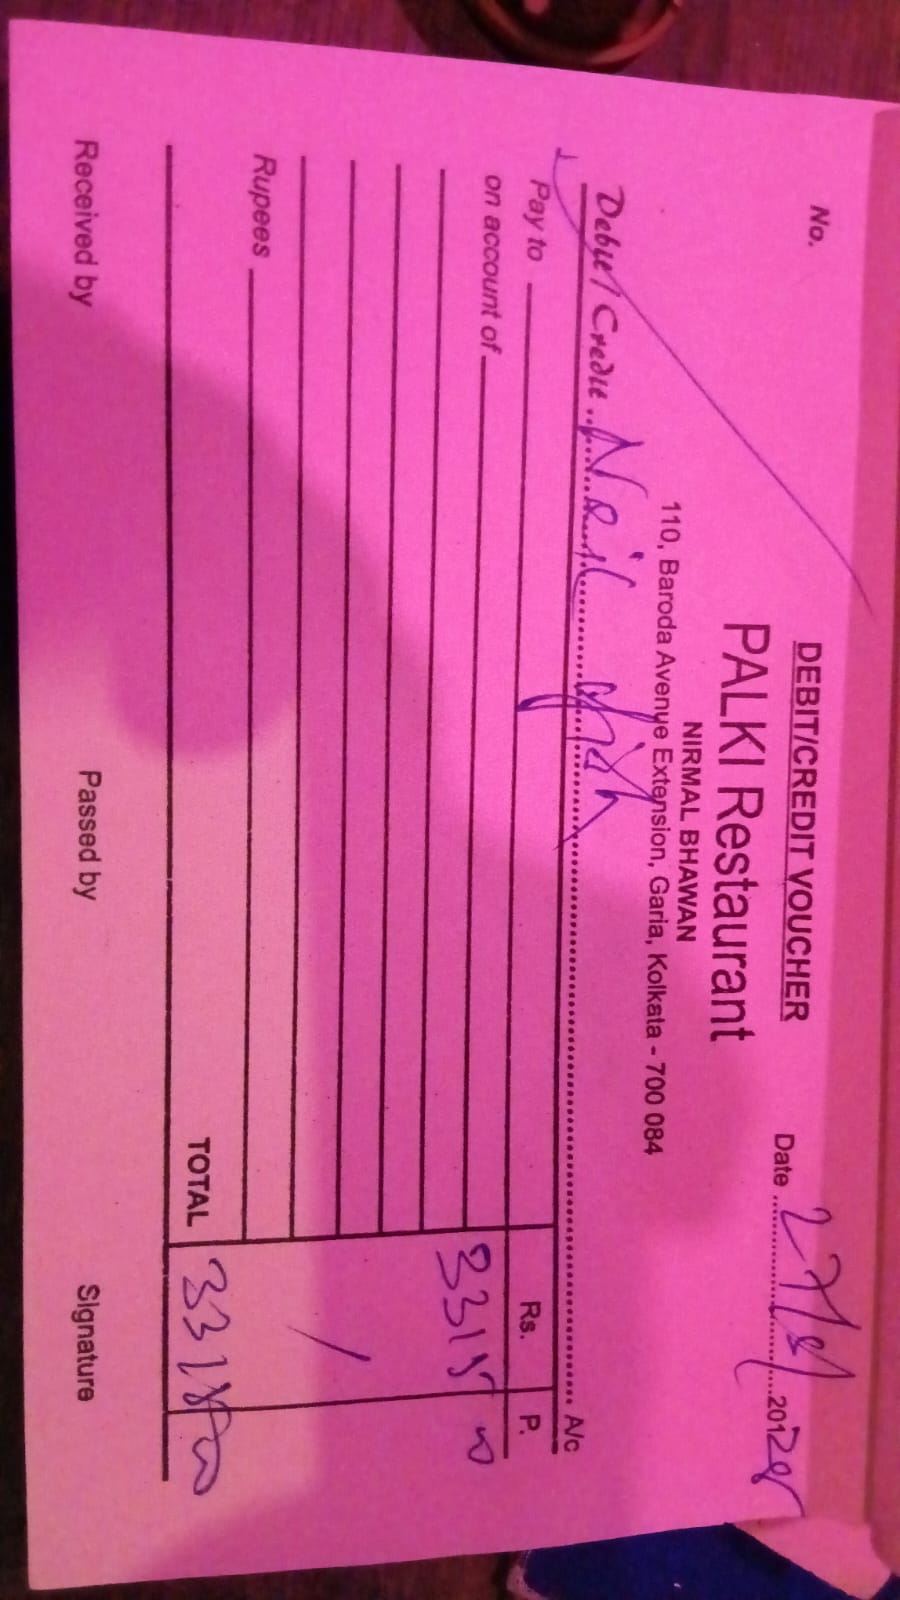 DEBIT/CREDIT VOUCHER
No.
Date
PALKI Restaurant
NIRMAL BHAWAN
110, Baroda Avenue Extension, Garia, Kolkata - 700 084
Debit / Credit Neil A/c
Pay to Rs. P.
on account of 3315
Rupees
TOTAL
Received by Passed by Signature